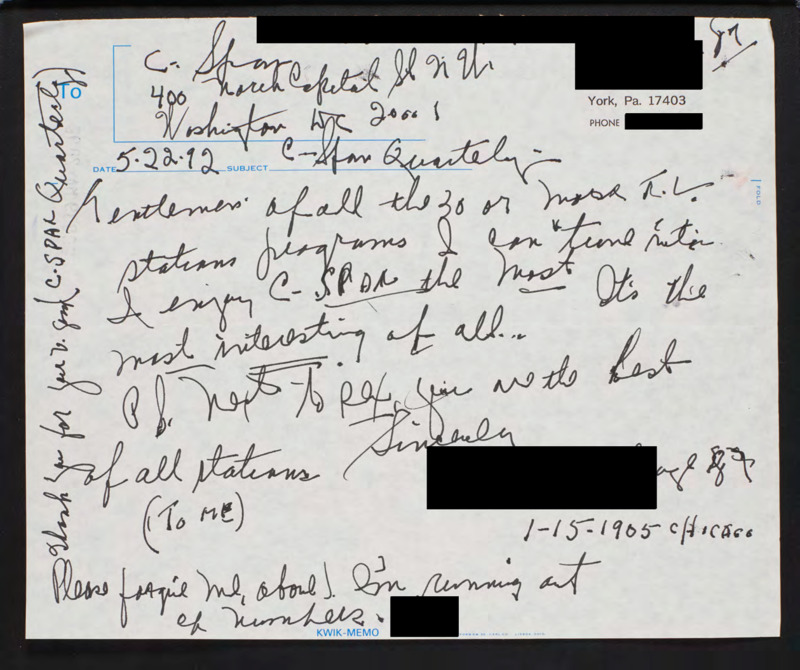 To
C-Span
400 North Capital St N W.
Washington DC 20001
York, Pa. 17403
PHONE
DATE 5.22.92 SUBJECT C-Span Quartely-
Gentlemen: of all the 30 or more T.V.
stations programs I can "tune into
I enjoy C-SPAN the most It's the
most interesting of all...
P.S. Next to you are the best
Sincerely
of all stations
(To ME)
1-15-1905 CHICAGO
Please forgive me, above). I'm running out
of numbers.
KWIK-MEMO
FOLD
Thank you for your v. good C-SPAN Quarterly)